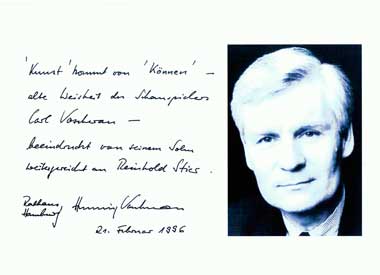 'Kunst' kommt von 'Können' –
alte Weisheit des Schauspielers
Carl Voscherau –
beeindruckt von seinem Sohn
weitergereicht an Reinhold Stier.
Rathaus Hamburg Henning Voscherau
21. Februar 1996